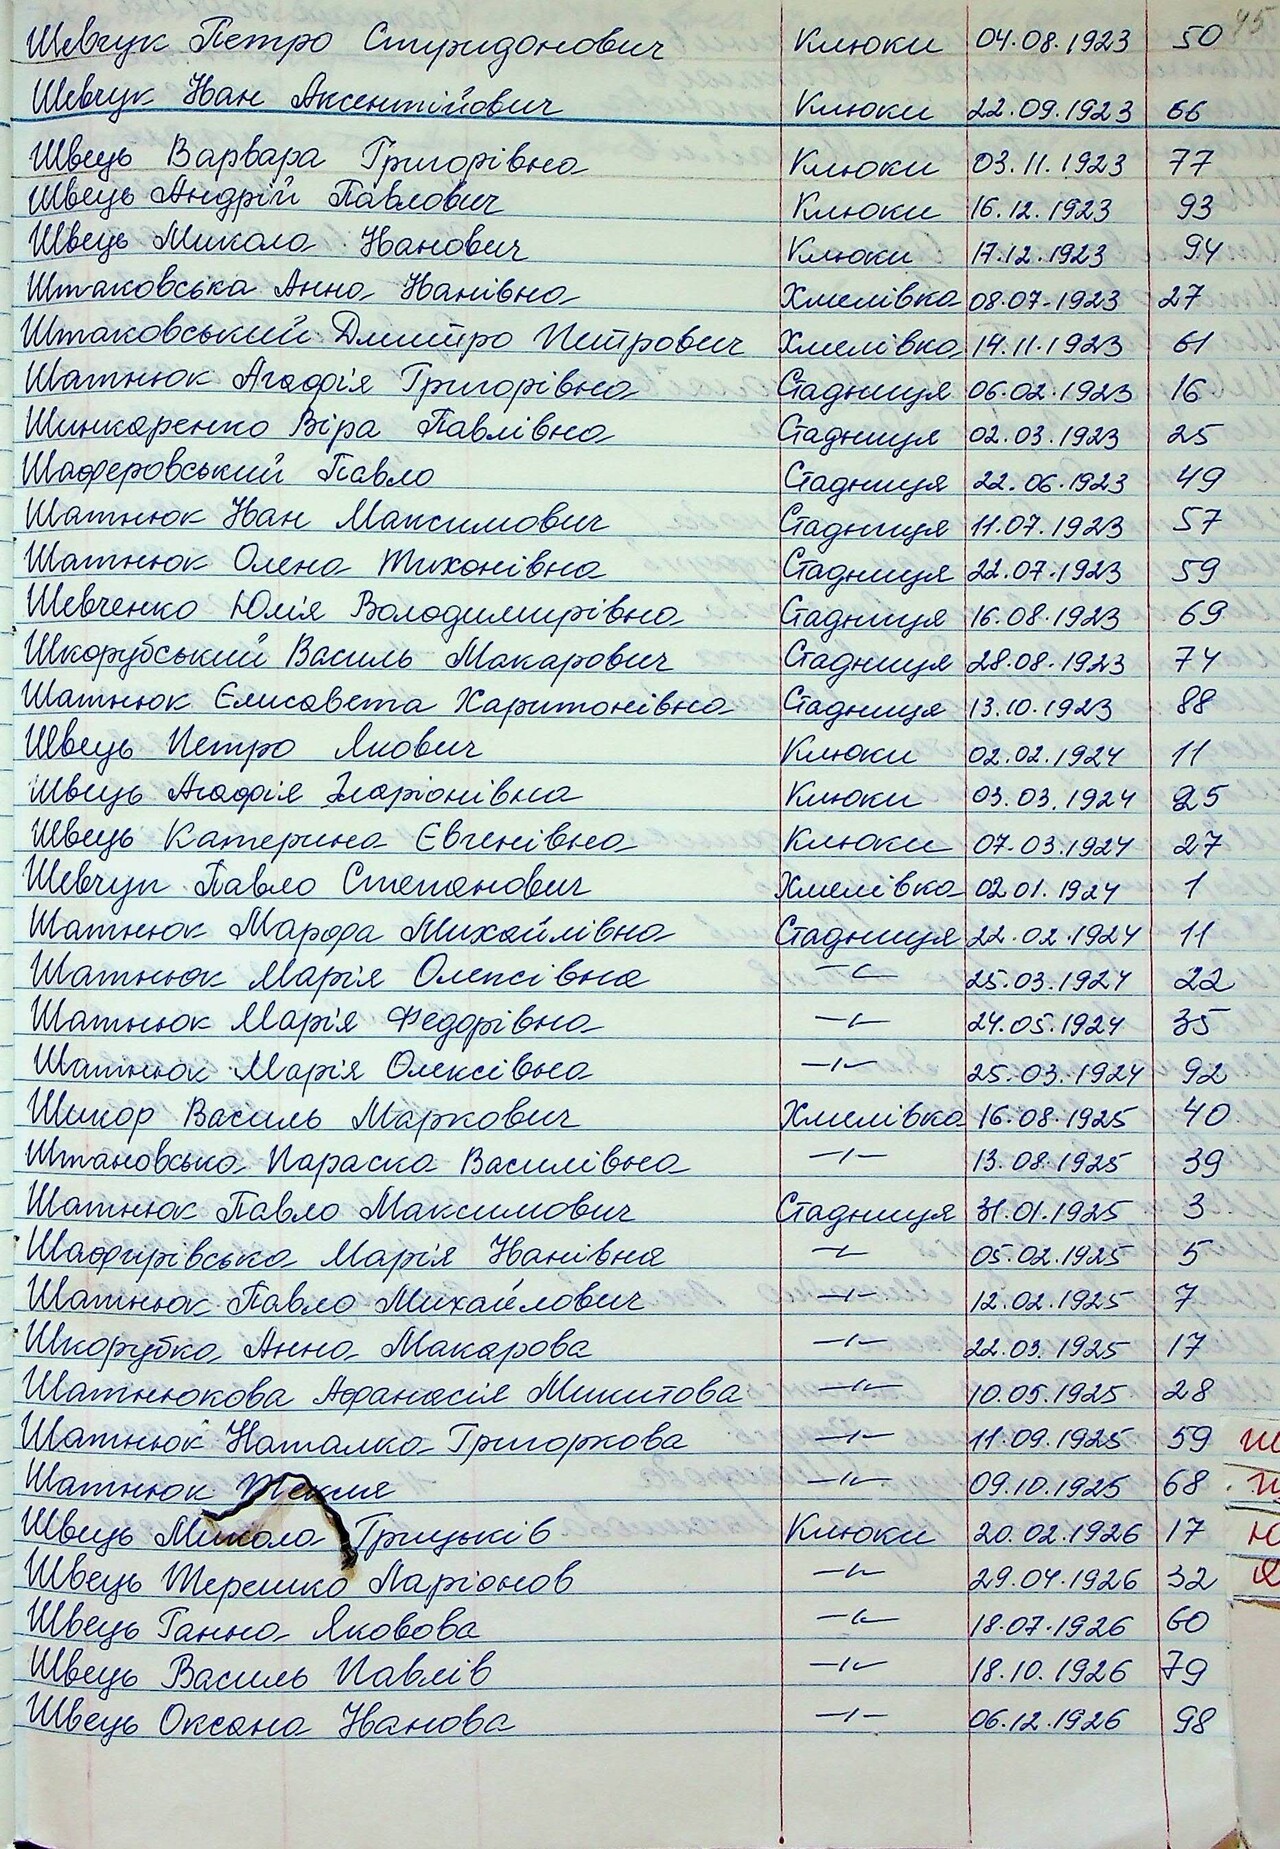 45
Шевчук Петро Спиридонович Клюки 04.08.1923 50
Шевчук Іван Аксентійович Клюки 22.09.1923 66
Швець Варвара Григорівна Клюки 03.11.1923 77
Швець Андрій Павлович Клюки 16.12.1923 93
Швець Микола Іванович Клюки 17.12.1923 94
Штаковська Анна Іванівна Хмелівка 08.07.1923 27
Штаковський Дмитро Петрович Хмелівка 14.11.1923 61
Шатнюк Агафія Григорівна Стадниця 06.02.1923 16
Шинкаренко Віра Павлівна Стадниця 02.03.1923 25
Шаферовський Павло Стадниця 22.06.1923 49
Шатнюк Іван Максимович Стадниця 11.07.1923 57
Шатнюк Олена Тихонівна Стадниця 22.07.1923 59
Шевченко Юлія Володимирівна Стадниця 16.08.1923 69
Шкорубський Василь Макарович Стадниця 28.08.1923 74
Шатнюк Єлисавета Харитонівна Стадниця 13.10.1923 88
Швець Петро Якович Клюки 02.02.1924 11
Швець Агафія Іларіонівна Клюки 03.03.1924 25
Швець Катерина Євгенівна Клюки 07.03.1924 27
Шевчук Павло Степанович Хмелівка 02.01.1924 1
Шатнюк Марфа Михайлівна Стадниця 22.02.1924 11
Шатнюк Марія Олексівна —"— 25.03.1924 22
Шатнюк Марія Федорівна —"— 24.05.1924 35
Шатнюк Марія Олексівна —"— 25.03.1924 92
Шикор Василь Маркович Хмелівка 16.08.1925 40
Штановська Параска Василівна —"— 13.08.1925 39
Шатнюк Павло Максимович Стадниця 31.01.1925 3
Шафирівська Марія Іванівна —"— 05.02.1925 5
Шатнюк Павло Михайлович —"— 12.02.1925 7
Шкорубка Анна Макарова —"— 22.03.1925 17
Шатнюкова Афанасія Микитова —"— 10.05.1925 28
Шатнюк Наталка Григоркова —"— 11.09.1925 59
Шатнюк Текля —"— 09.10.1925 68
Швець Микола Грицьків Клюки 20.02.1926 17
Швець Терешко Ларіонов —"— 29.04.1926 32
Швець Ганна Яковова —"— 18.07.1926 60
Швець Василь Павлів —"— 18.10.1926 79
Швець Оксана Іванова —"— 06.12.1926 98